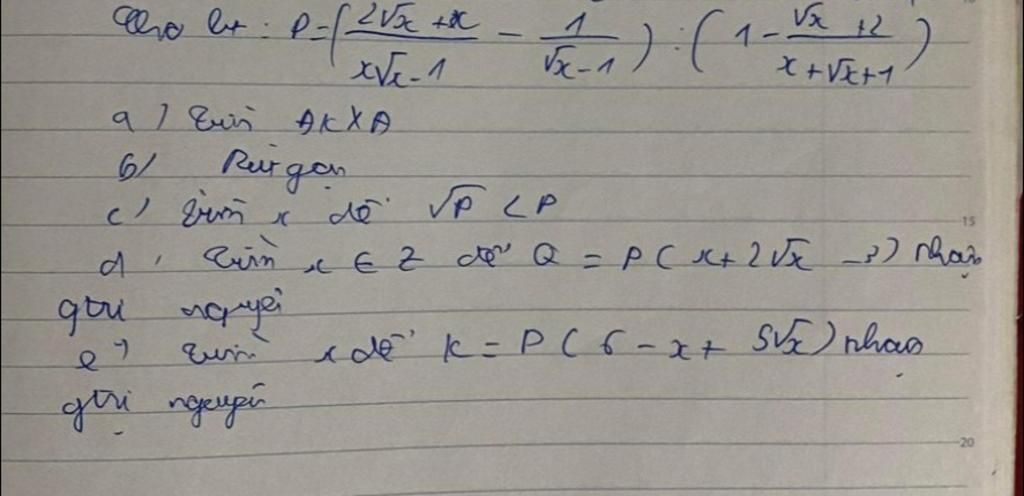 Cho bt : P = ( (2√x + x)/(x√x - 1) - 1/(√x - 1) ) : ( 1 - (√x + 2)/(x + √x + 1) )
a) Tìm ĐKXĐ
b/ Rút gọn
c) Tìm x để √P < P
d, Tìm x ∈ Z để Q = P( x + 2√x - 3) nhận
gtri nguyên
e) Tìm x để K = P( 6 - x + 5√x) nhận
gtri nguyên
15
20